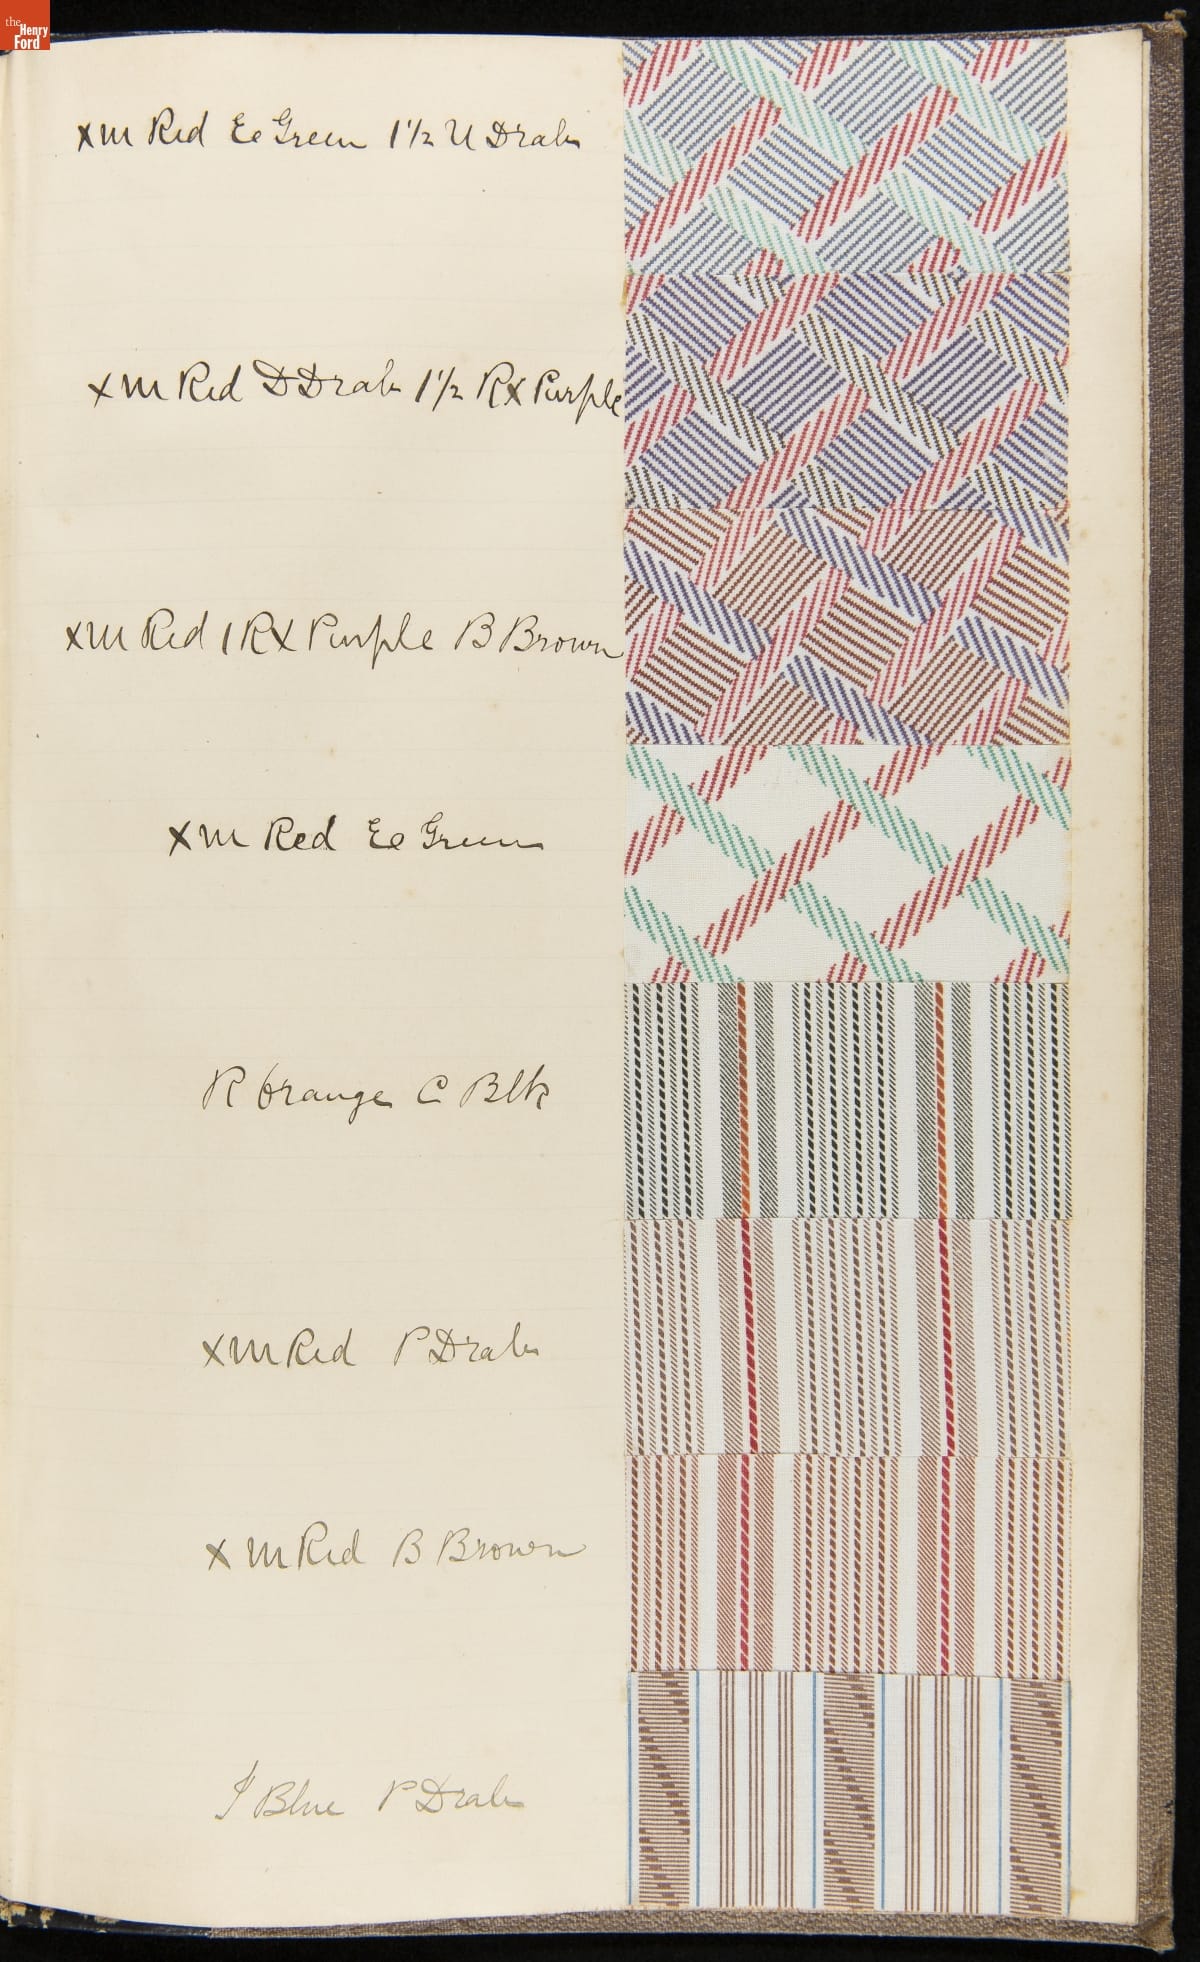 the
Henry
Ford
XM Red Ee Green 1½ U Drab
XM Red D Drab 1½ RX Purple
XM Red 1 RX Purple B Brown
XM Red Ee Green
R Orange C Blk
XM Red P Drab
XM Red B Brown
J Blue P Drab